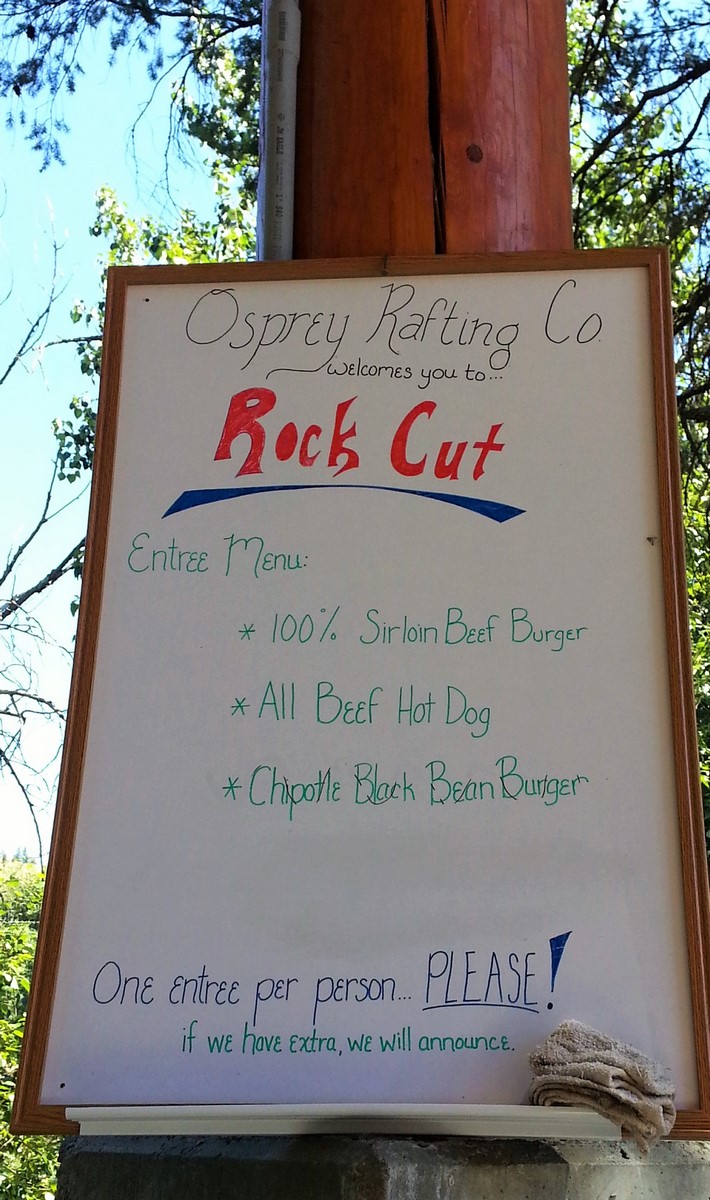 Osprey Rafting Co.
welcomes you to...
Rock Cut
Entree Menu:
* 100% Sirloin Beef Burger
* All Beef Hot Dog
* Chipotle Black Bean Burger
One entree per person... PLEASE!
if we have extra, we will announce.